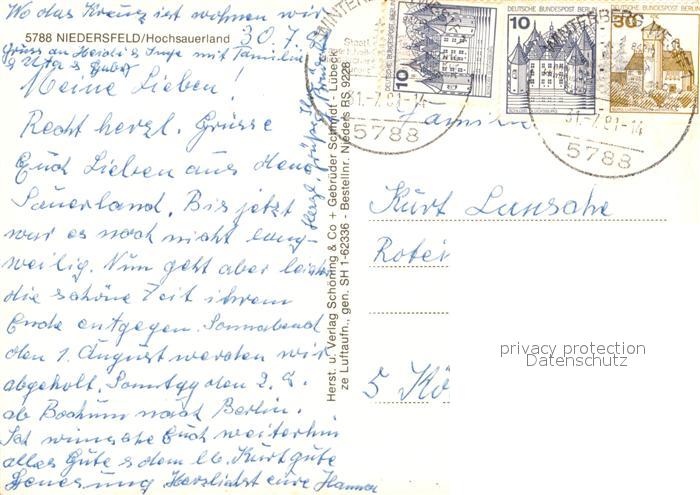 Wo das Kreuz ist wohnen wir
5788 NIEDERSFELD/Hochsauerland
30.7.
Gruss an Familie
Meine Lieben!
Recht herzl. Grüsse
Euch Lieben aus dem
Sauerland. Bis jetzt
war es noch nicht lang-
weilig. Nun geht aber leider
die schöne Zeit ihrem
Ende entgegen. Sonnabend
den 1. August werden wir
abgeholt. Sonntag den 2. 8.
ab Bochum nach Berlin.
wünsche Euch weiterhin
alles Gute & dem lb. Kurt gute
Genesung Herzlichst eure Hanna
Herzl. Grüße
Herst. u. Verlag Schöning & Co + Gebrüder Schmidt - Lübeck
ze Luftaufn., gen. SH 1-62336 - Bestellnr. Nieders RS 9228
DEUTSCHE BUNDESPOST BERLIN
10
DEUTSCHE BUNDESPOST BERLIN
10
DEUTSCHE BUNDESPOST BERLIN
30
WINTERBERG, WESTF
31.-7.81-14
5788
WINTERBERG, WESTF
31.-7.81-14
5788
Familie
Kurt
5 Kö
privacy protection
Datenschutz